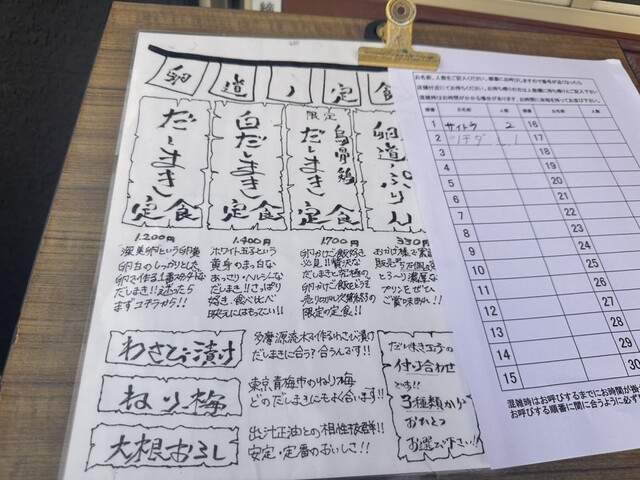 卵道ノ定食
だしまき定食
白だしまき定食
限定
烏骨鶏
だしまき定食
卵道ぷりん
1.200円
1.400円
1700円
330円
ホワイト玉子という
黄身のまっ白な
あっさりヘルシーな
だしまき!!さっぱり
好き・食べ比べ
映えにはもってこい!!
卵かけご飯好き
必見!!贅沢な
だしまきと究極の
の限定の定食!!
プリンをぜひご
ご賞味あれ!!
卵白のしっかりした
だしまき!!迷ったら
まずコチラから!!
わさび漬け
多摩源流水で作るわさび漬け
だしまきに合う?合うんです!!
ねり梅
東京青梅市のねり梅
どのだしまきにもよく合います!!
大根おろし
出汁正油との相性抜群!!
安定・定番のおいしさ!!
だしまき玉子の
付け合わせ
です!!
3種類から
おひとつ
お選び下さい!!
お名前、人数をご記入ください。順番にお呼びしますので番号が近くなったら
店舗付近にてお待ちください。
順番
お名前
人数
順番
お名前
人数
1 サイトウ 2 16
2 ツチダ 1 17
3 18
4 19
5 20
6 21
7 22
8 23
9 24
10 25
11 26
12 27
13 28
14 29
15 30
混雑時はお呼びするまでにお時間が
お呼びする順番に間に合うように必ず